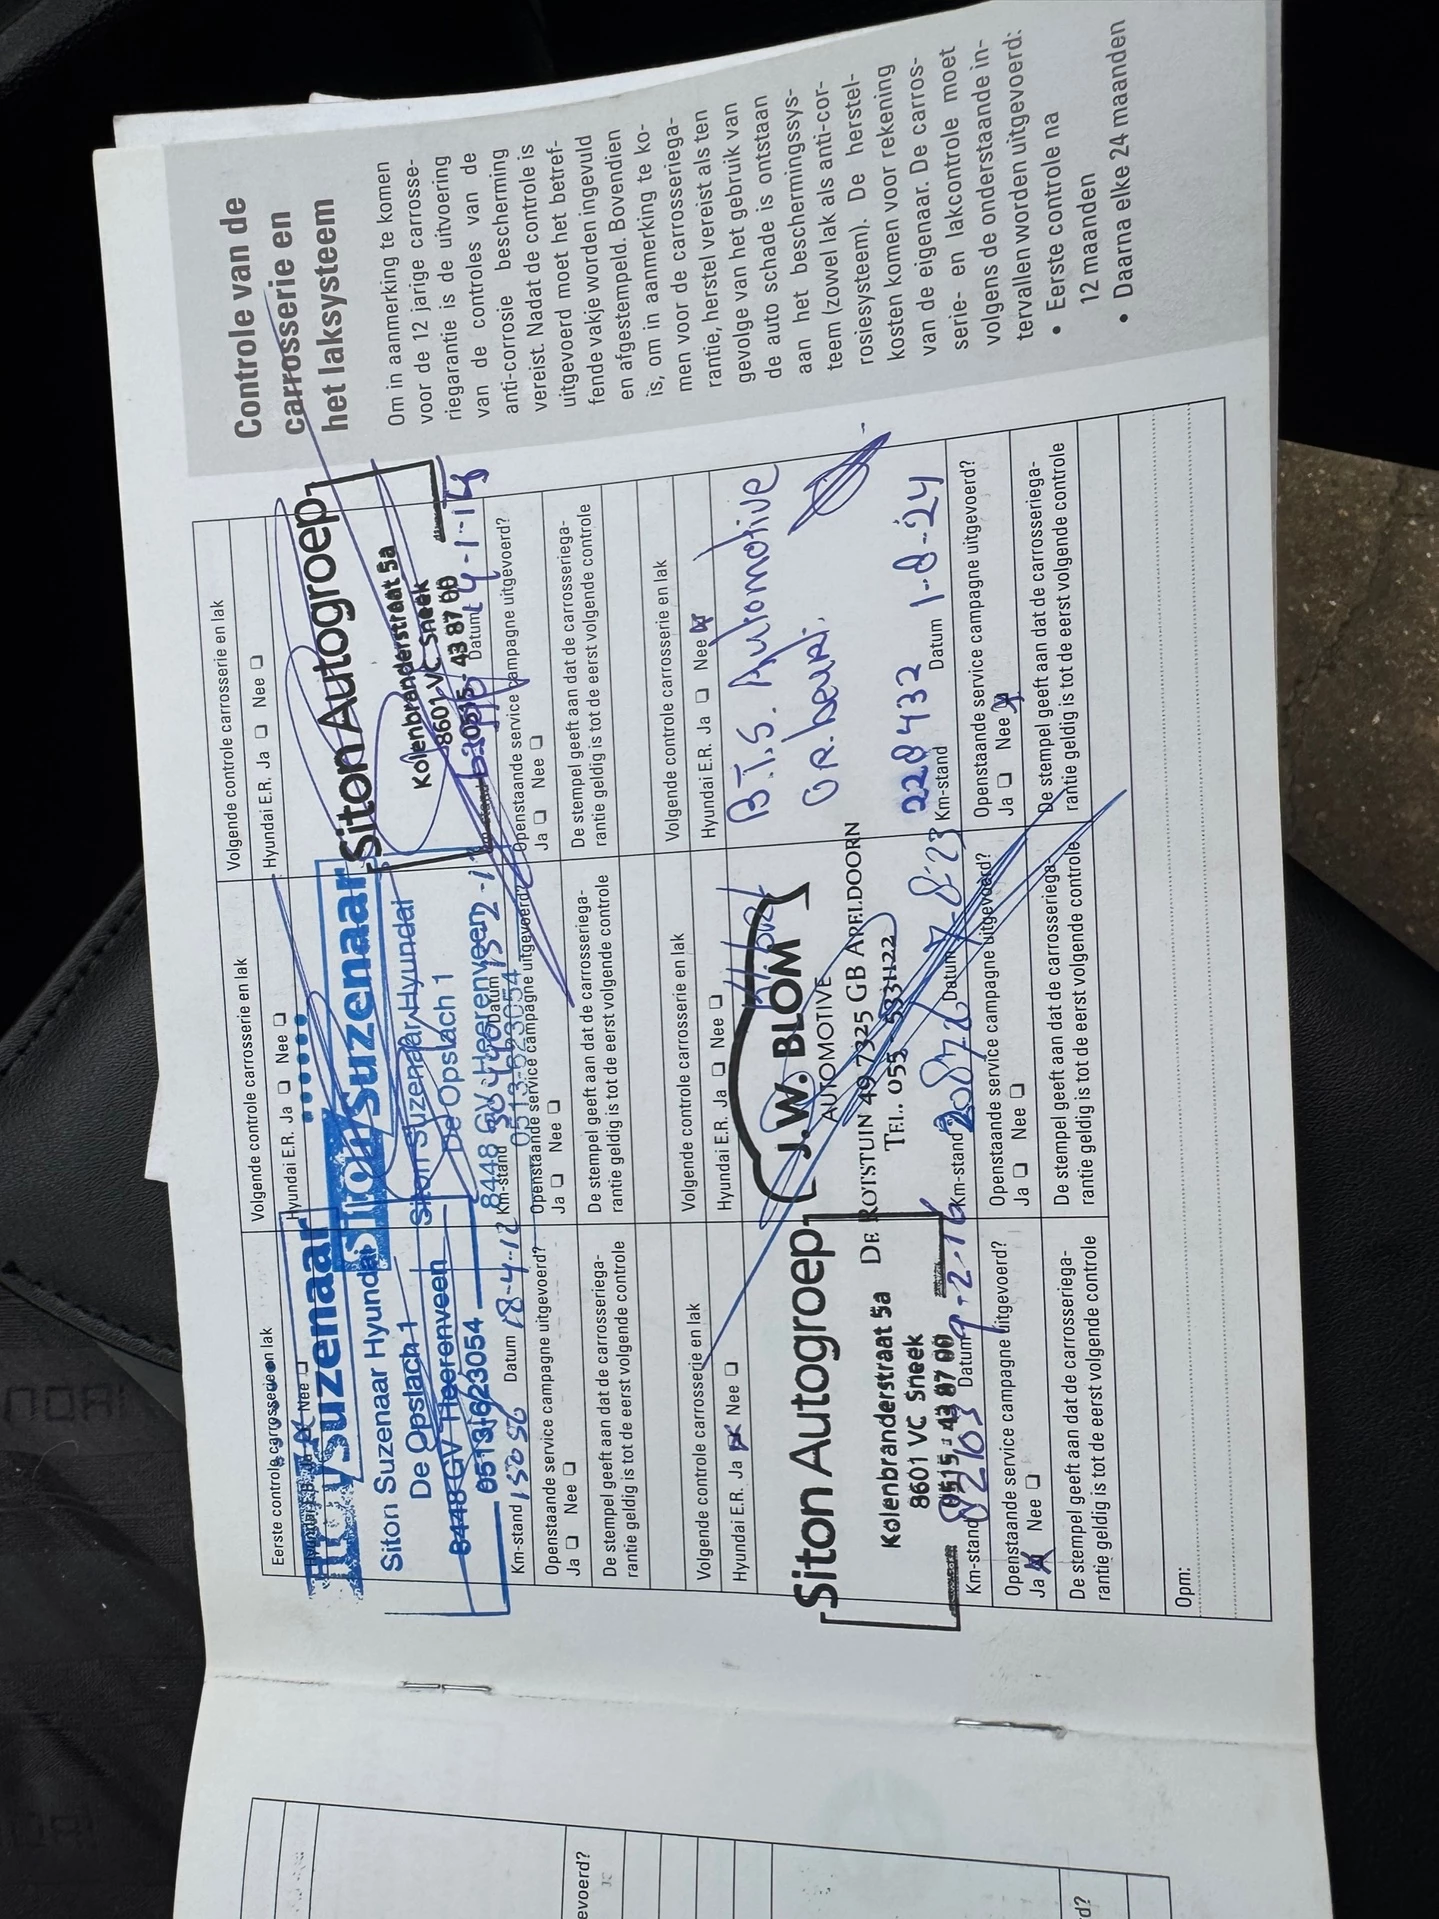 Controle van de
carrosserie en
het laksysteem
Om in aanmerking te komen
voor de 12 jarige carrosse-
riegarantie is de uitvoering
van de controles van de
anti-corrosie bescherming
vereist. Nadat de controle is
uitgevoerd moet het betref-
fende vakje worden ingevuld
en afgestempeld. Bovendien
is, om in aanmerking te ko-
men voor de carrosseriega-
rantie, herstel vereist als ten
gevolge van het gebruik van
de auto schade is ontstaan
aan het beschermingssys-
teem (zowel lak als anti-cor-
rosiesysteem). De herstel-
kosten komen voor rekening
van de eigenaar. De carros-
serie- en lakcontrole moet
volgens de onderstaande in-
tervallen worden uitgevoerd:
• Eerste controle na
12 maanden
• Daarna elke 24 maanden
Eerste controle carrosserie en lak
Nee
Suzenaar
Siton Suzenaar Hyundai
De Opslach 1
8448 GV Heerenveen
0513-623054
Km-stand 15056 Datum 18-4-12
Openstaande service campagne uitgevoerd?
Ja Nee
De stempel geeft aan dat de carrosseriega-
rantie geldig is tot de eerst volgende controle
Volgende controle carrosserie en lak
Hyundai E.R. Ja Nee
Siton/Suzenaar
Siton Suzenaar Hyundai
De Opslach 1
8448 GV Heerenveen
0513-623054
Km-stand Datum
Openstaande service campagne uitgevoerd?
Ja Nee
De stempel geeft aan dat de carrosseriega-
rantie geldig is tot de eerst volgende controle
Volgende controle carrosserie en lak
Hyundai E.R. Ja Nee
Siton Autogroep
Kolenbranderstraat 5a
8601 VC Sneek
0515 - 43 87 00
Datum
Openstaande service campagne uitgevoerd?
Ja Nee
De stempel geeft aan dat de carrosseriega-
rantie geldig is tot de eerst volgende controle
Volgende controle carrosserie en lak
Hyundai E.R. Ja Nee
Siton Autogroep
Kolenbranderstraat 5a
8601 VC Sneek
0515 - 43 87 00
Km-stand 82103 Datum 9-2-16
Openstaande service campagne uitgevoerd?
Ja Nee
De stempel geeft aan dat de carrosseriega-
rantie geldig is tot de eerst volgende controle
Volgende controle carrosserie en lak
Hyundai E.R. Ja Nee
J.W. BLOM
AUTOMOTIVE
DE ROTSTUIN 49 7325 GB APELDOORN
TEL. 055 - 5331122
Km-stand Datum
Openstaande service campagne uitgevoerd?
Ja Nee
De stempel geeft aan dat de carrosseriega-
rantie geldig is tot de eerst volgende controle
Volgende controle carrosserie en lak
Hyundai E.R. Ja Nee
B.T.S. Automotive
228432 1-8-24
Km-stand Datum
Openstaande service campagne uitgevoerd?
Ja Nee
De stempel geeft aan dat de carrosseriega-
rantie geldig is tot de eerst volgende controle
Opm:
evoerd?
d?